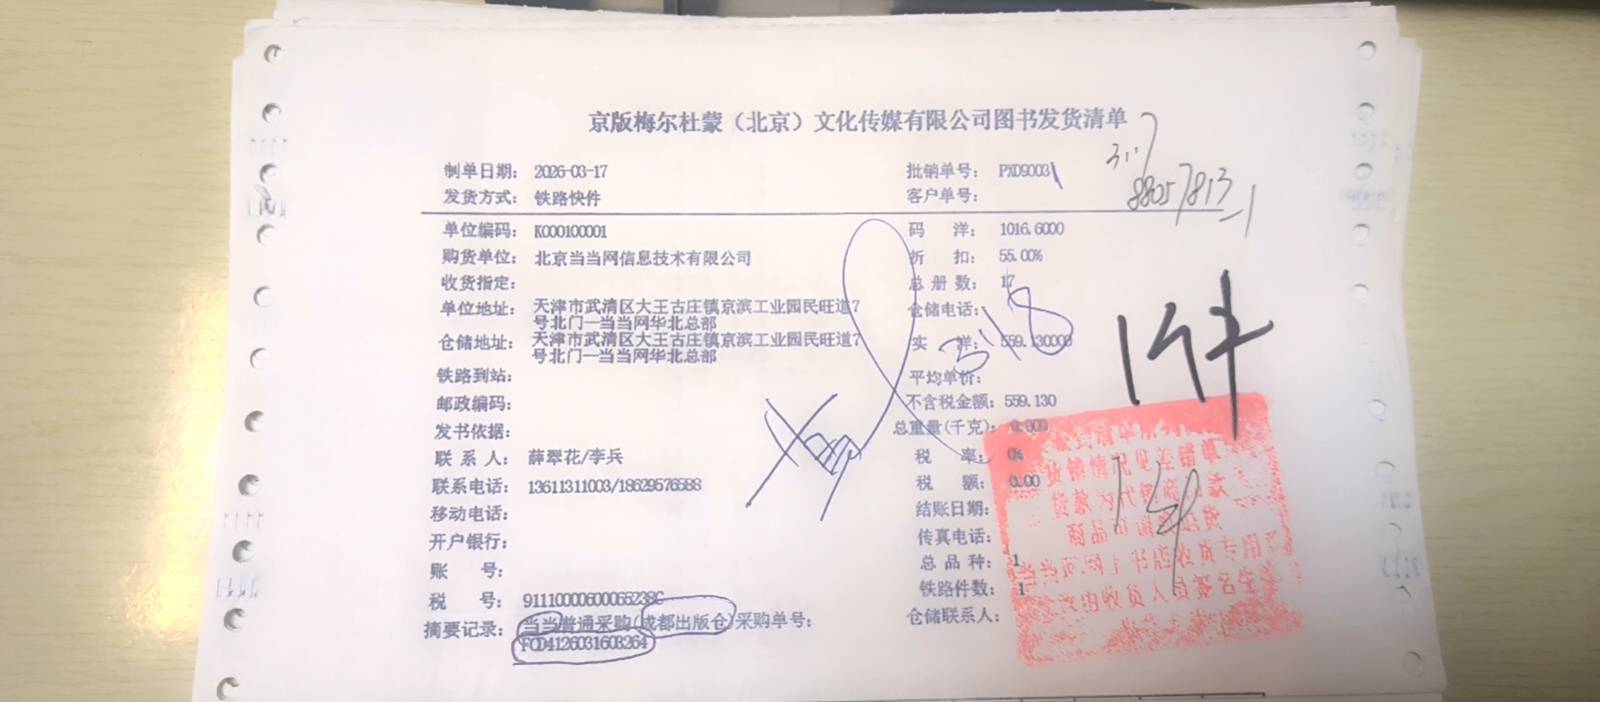 京版梅尔杜蒙（北京）文化传媒有限公司图书发货清单
制单日期： 2026-03-17 批销单号： PXD9003
发货方式： 铁路快件 客户单号：
3.17
88057813-1
单位编码： K000100001 码 洋： 1016.6000
购货单位： 北京当当网信息技术有限公司 折 扣： 55.00%
收货指定： 总 册 数： 17
单位地址： 天津市武清区大王古庄镇京滨工业园民旺道7 仓储电话：
号北门—当当网华北总部
仓储地址： 天津市武清区大王古庄镇京滨工业园民旺道7 实 洋： 559.130000
号北门—当当网华北总部
3.18
1件
铁路到站： 平均单价：
邮政编码： 不含税金额： 559.130
发书依据： 总重量(千克)： 0.000
联 系 人： 薛翠花/李兵 税 率： 0%
联系电话： 13611311003/18629576588 税 额： 0.00
移动电话： 结账日期：
开户银行： 传真电话：
账 号： 总 品 种： 1
税 号： 911100006000065238C 铁路件数： 1
摘要记录： 当当普通采购(成都出版仓)采购单号： 仓储联系人：
FCD4126031603264
货错情况见差错单
当当网网上书店收货专用